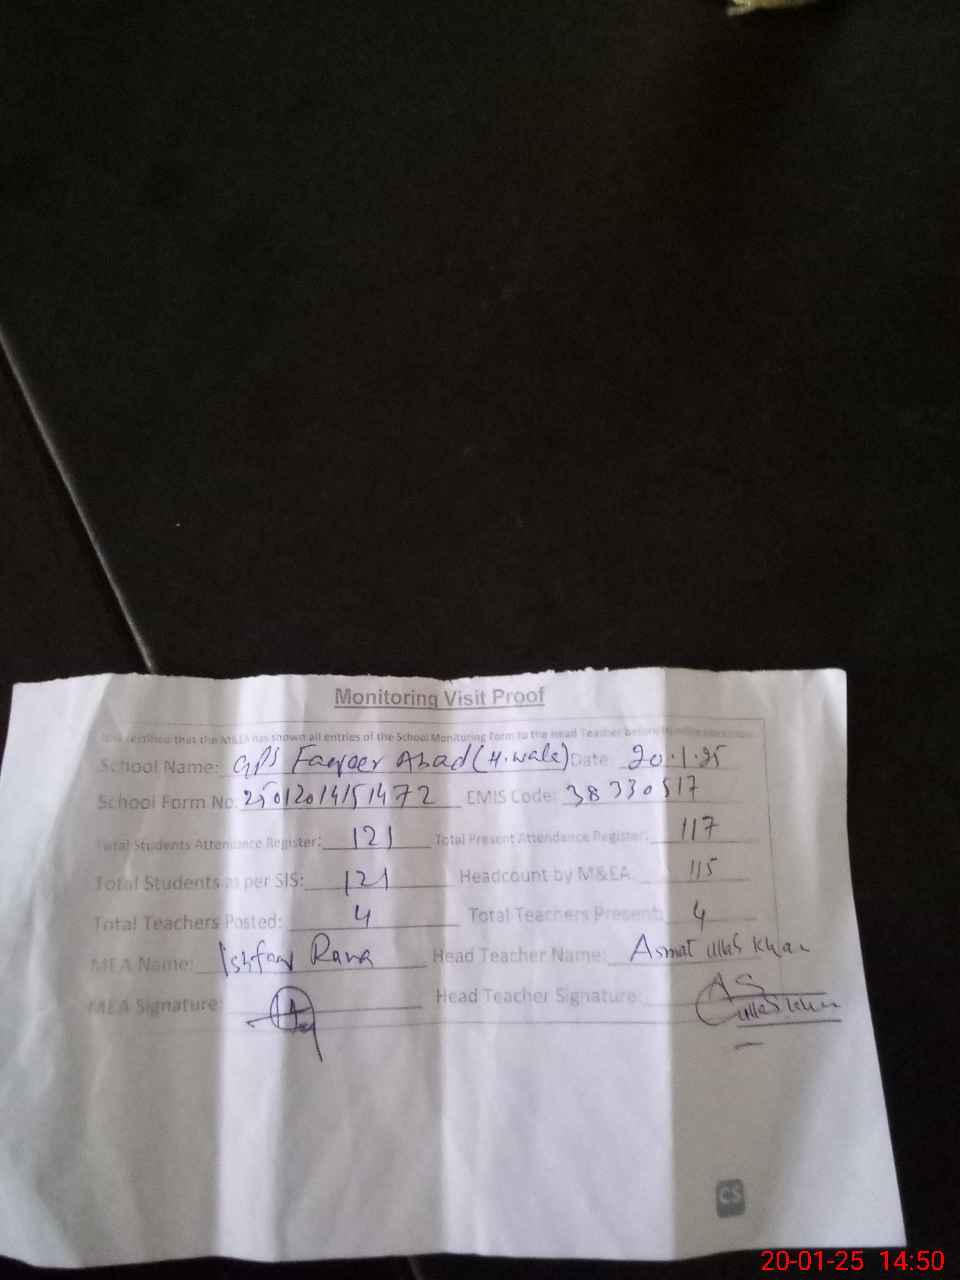 Monitoring Visit Proof
It is certified that the M&EA has shown all entries of the School Monitoring Form to the Head Teacher before
School Name: GPS Faqeer Abad (H.wala) Date: 20.1.25
School Form No: 25012014151472 EMIS Code: 38330517
Total Students Attendance Register: 121 Total Present Attendance Register: 117
Total Students as per SIS: 121 Headcount by M&EA: 115
Total Teachers Posted: 4 Total Teachers Present: 4
MEA Name: Ishfaq Rana Head Teacher Name: Asmat ullah Khan
MEA Signature: Head Teacher Signature:
CS
20-01-25 14:50